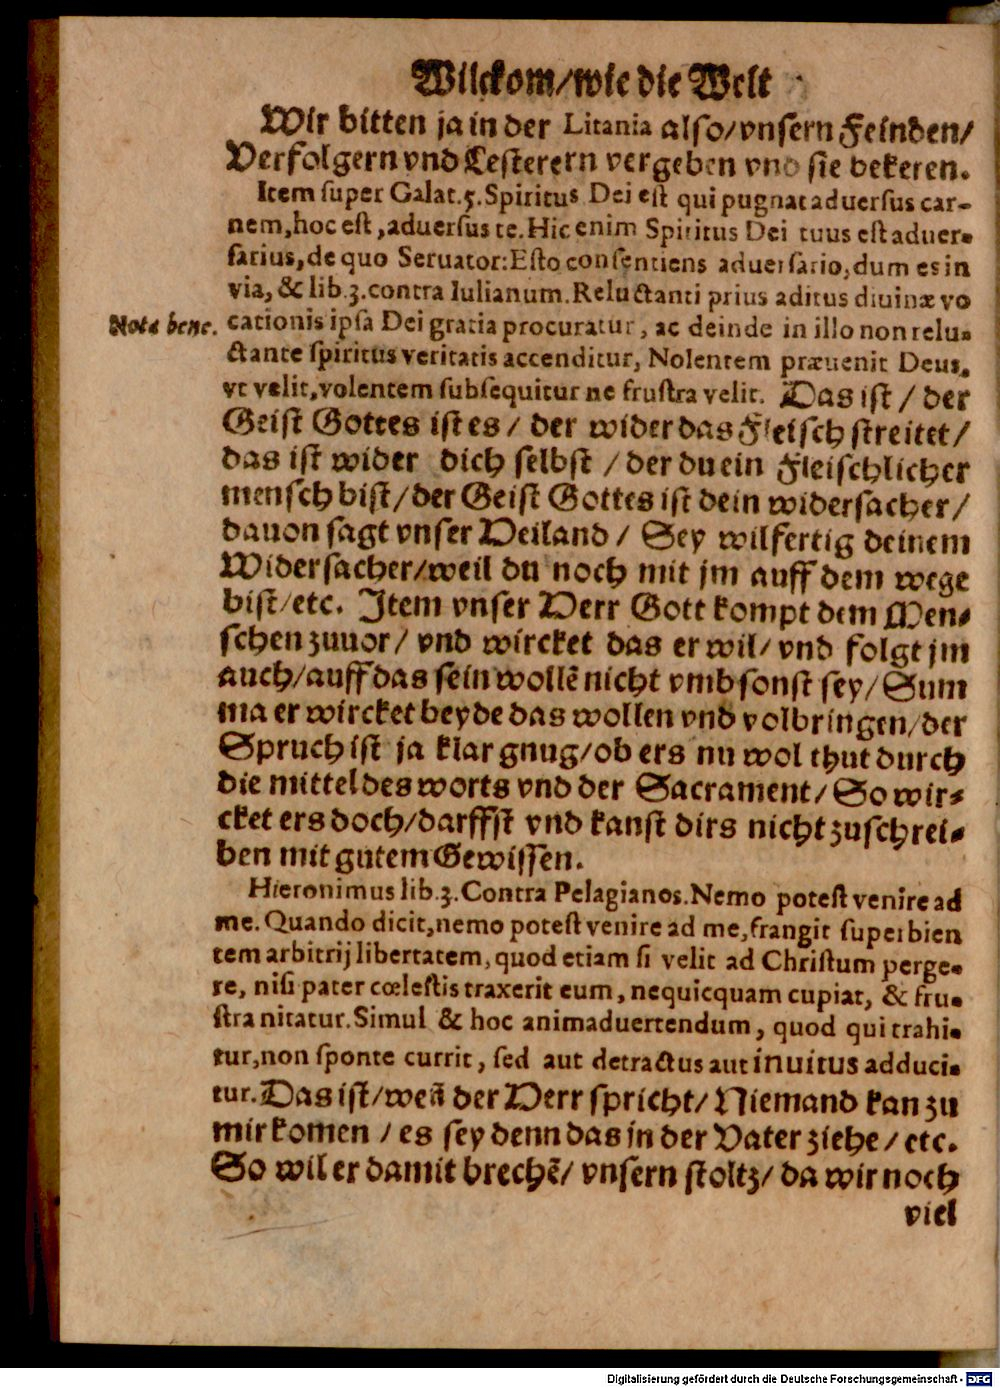 Wilckom/wie die Welt
Wir bitten ja in der Litania also/vnsern Feinden/
Verfolgern vnd Lesterern vergeben vnd sie bekeren.
Item super Galat.5.Spiritus Dei est qui pugnat aduersus car-
nem,hoc est,aduersus te.Hic enim Spiritus Dei tuus est aduer-
sarius,de quo Seruator:Esto consentiens aduersario,dum es in
via, & lib.3.contra Iulianum.Reluctanti prius aditus diuinæ vo
Nota bene.
cationis ipsa Dei gratia procuratur, ac deinde in illo non relu-
ctante spiritus veritatis accenditur, Nolentem præuenit Deus,
vt velit,volentem subsequitur ne frustra velit. Das ist / der
Geist Gottes ist es / der wider das Fleisch streitet/
das ist wider dich selbst / der du ein Fleischlicher
mensch bist/der Geist Gottes ist dein widersacher/
dauon sagt vnser Heiland / Sey wilfertig deinem
Widersacher/weil du noch mit jm auff dem wege
bist/etc. Item vnser Herr Gott kompt dem Men-
schen zuuor/ vnd wircket das er wil/ vnd folgt jm
auch/auff das sein wollē nicht vmbsonst sey/Sum
ma er wircket beyde das wollen vnd volbringen/der
Spruch ist ja klar gnug/ob ers nu wol thut durch
die mittel des worts vnd der Sacrament/So wir-
cket ers doch/darffst vnd kanst dirs nicht zuschrei-
ben mit gutem Gewissen.
Hieronimus lib.3.Contra Pelagianos.Nemo potest venire ad
me.Quando dicit,nemo potest venire ad me,frangit superbien
tem arbitrij libertatem,quod etiam si velit ad Christum perge-
re, nisi pater cœlestis traxerit eum, nequicquam cupiat, & fru-
stra nitatur.Simul & hoc animaduertendum, quod qui trahi-
tur,non sponte currit, sed aut detractus aut inuitus adduci-
tur.Das ist/weñ der Herr spricht/Niemand kan zu
mir komen /es sey denn das in der Vater ziehe/etc.
So wil er damit brechē/ vnsern stoltz/ da wir noch
viel
Digitalisierung gefördert durch die Deutsche Forschungsgemeinschaft - DFG